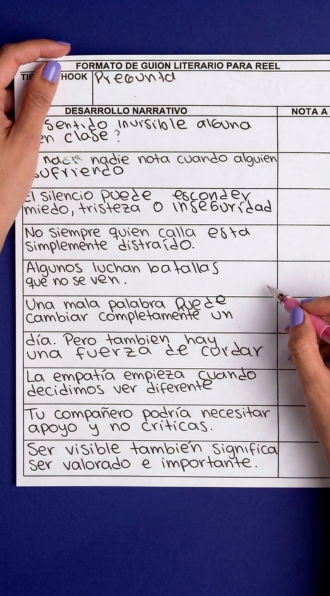 FORMATO DE GUION LITERARIO PARA REEL
HOOK Pregunta
DESARROLLO NARRATIVO NOTA A
sentido invisible alguna
en clase?
nadie nota cuando alguien
sufriendo
El silencio puede esconder
miedo, tristeza o inseguridad
No siempre quien calla esta
simplemente distraído.
Algunos luchan batallas
que no se ven.
Una mala palabra puede
cambiar completamente un
día. Pero tambien hay
una fuerza de
La empatía empieza cuando
decidimos ver diferente
Tu compañero podría necesitar
apoyo y no críticas.
Ser visible también significa
ser valorado e importante.